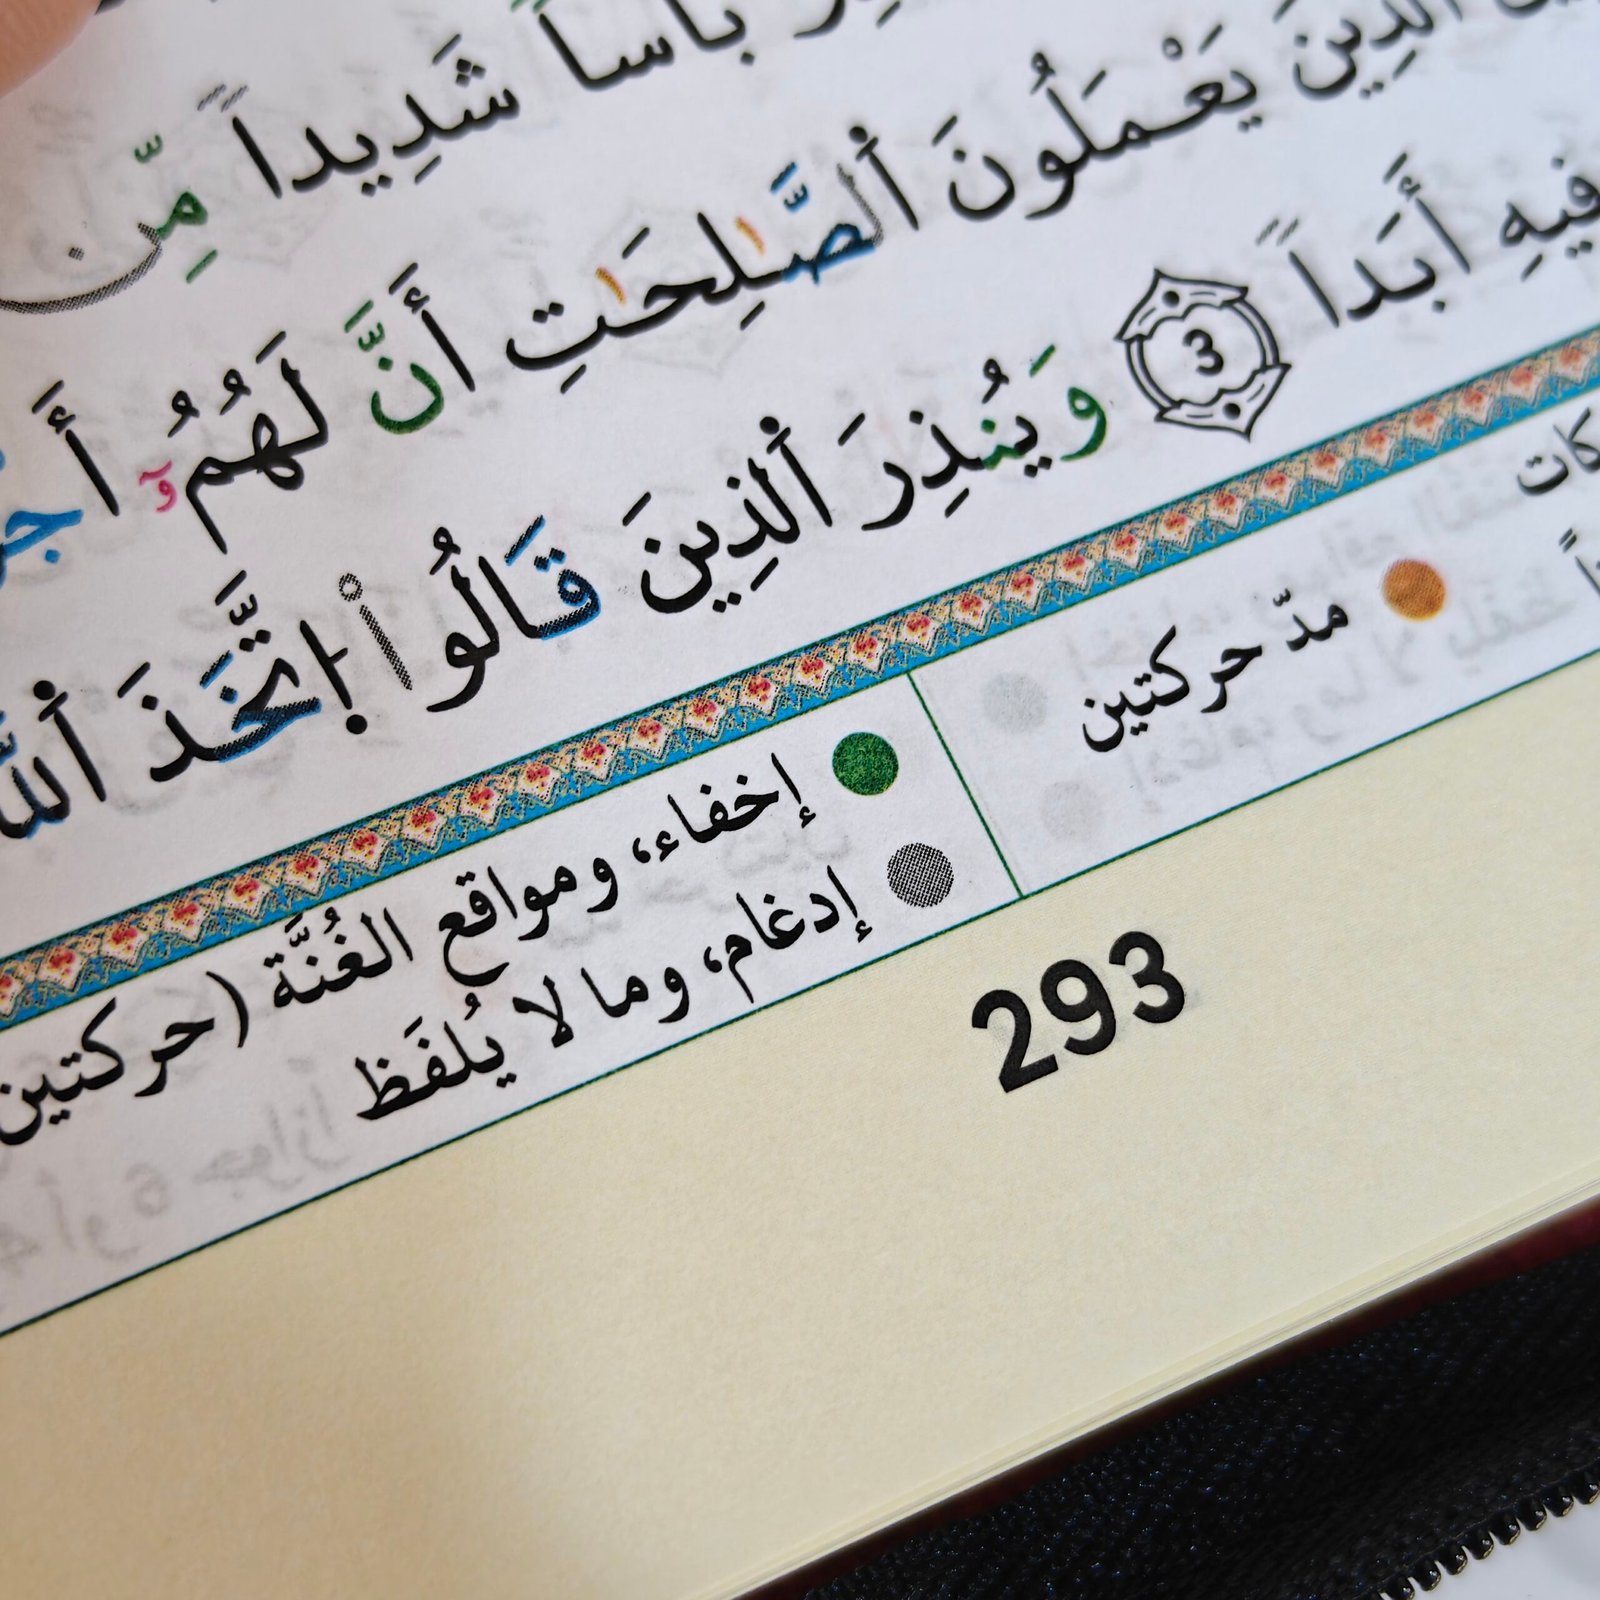 بَأْساً شَدِيداً مِّن
الذِينَ يَعْمَلُونَ اَ۬لصَّٰلِحَٰتِ أَنَّ لَهُمُۥٓ أَجْ
فِيهِ أَبَداً 3 وَيُنذِرَ اَ۬لذِينَ قَالُواْ اُ۪تَّخَذَ اَ۬للَّ
مدّ حركتين
إخفاء، ومواقع الغُنَّة (حركتين
إدغام، وما لا يُلفَظ
293